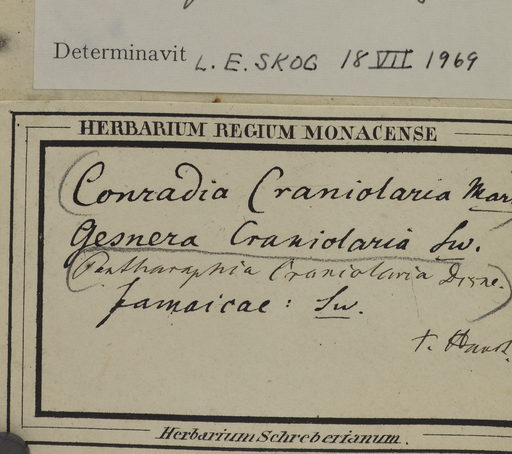 Determinavit L. E. SKOG 18 VII 1969
HERBARIUM REGIUM MONACENSE
Conradia Craniolaria Mar
Gesnera Craniolaria Sw.
Pentharaphia Craniolaria
Jamaicae: Sw.
Herbarium Schreberianum.